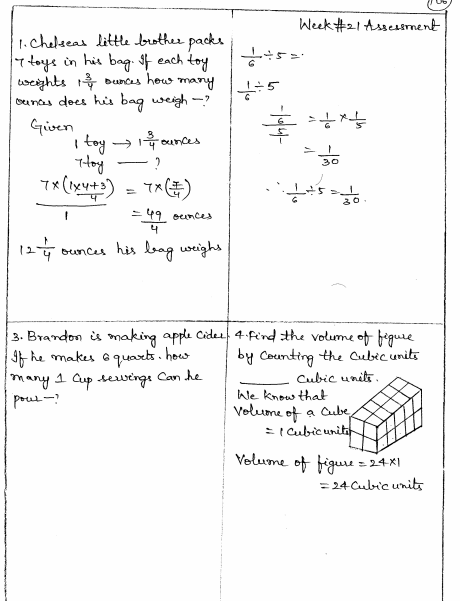 106
Week#21 Assessment
1. Chelseas little brother packs
7 toys in his bag. If each toy
weights 1 3/4 ounces how many
ounces does his bag weigh —?
Given
1 toy → 1 3/4 ounces
7 toy — ?
7×(1×4+3/4)/1 = 7×(7/4)
= 49/4 ounces
12 1/4 ounces his bag weighs
1/6 ÷ 5 = ·
1/6 ÷ 5
(1/6)/(5/1) = 1/6 × 1/5
= 1/30
∴ 1/6 ÷ 5 = 1/30.
3. Brandon is making apple Cider
If he makes 6 quarts. how
many 1 Cup servings Can he
pour —?
4. Find the volume of figure
by Counting the Cubic units
______ Cubic units.
We Know that
Volume of a Cube
= 1 Cubic units
Volume of figure = 24×1
= 24 Cubic units